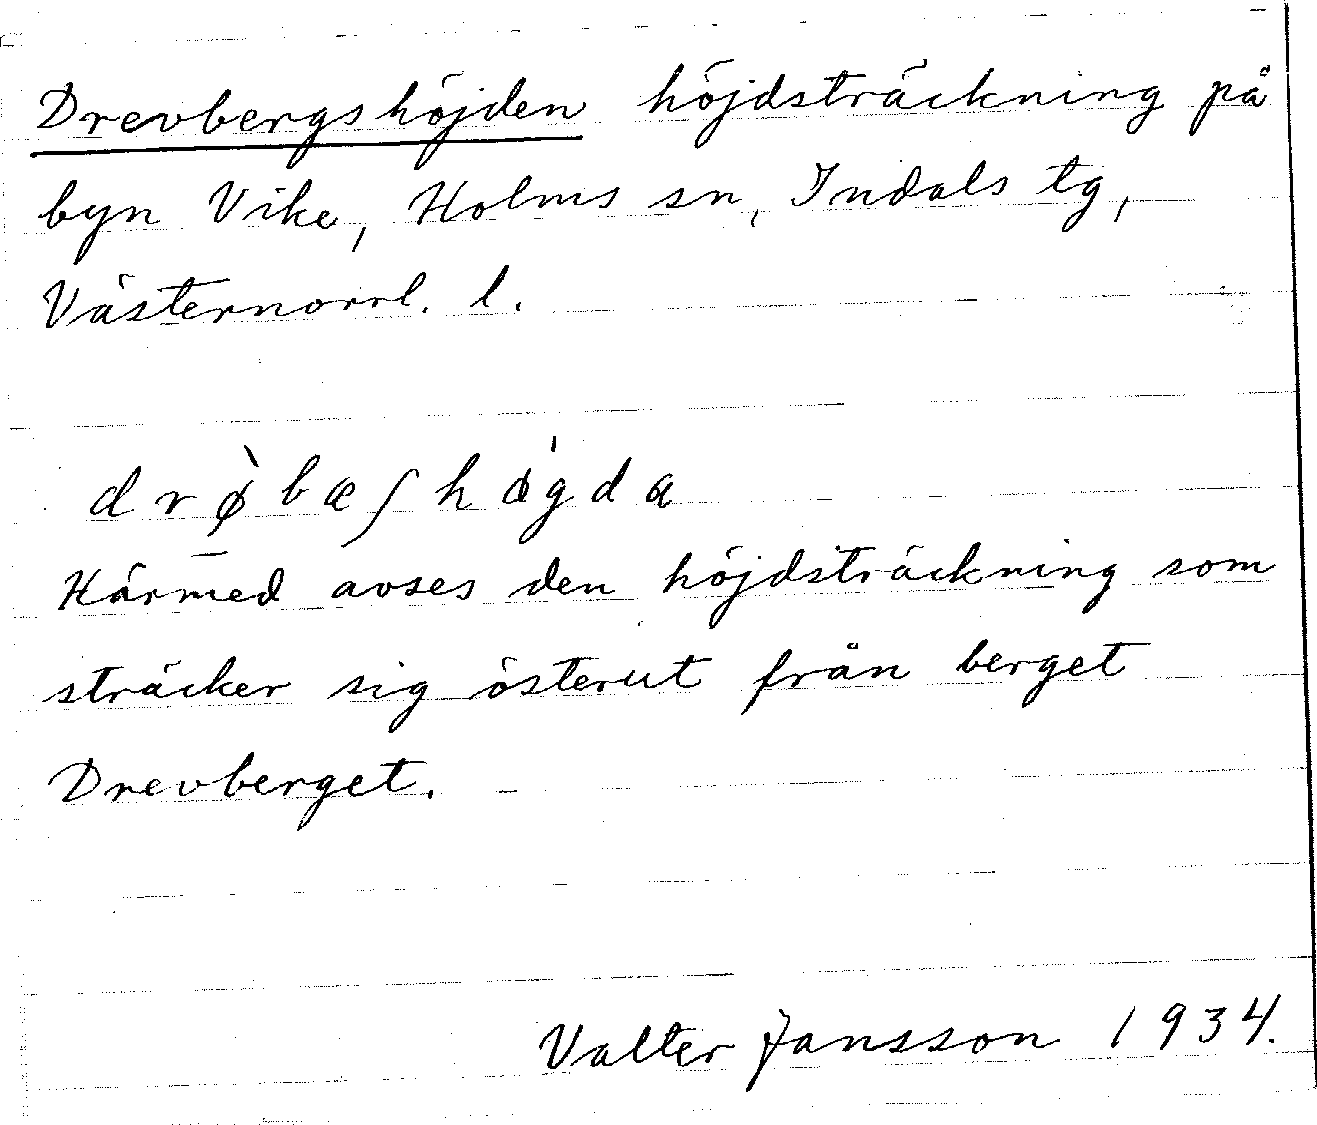 Drevbergshöjden höjdsträckning på
byn Vike, Holms sn, Indals tg,
Västernorrl. l.
drø̀bæʃhǿgda
Härmed avses den höjdsträckning som
sträcker sig österut från berget
Drevberget.
Valter Jansson 1934.